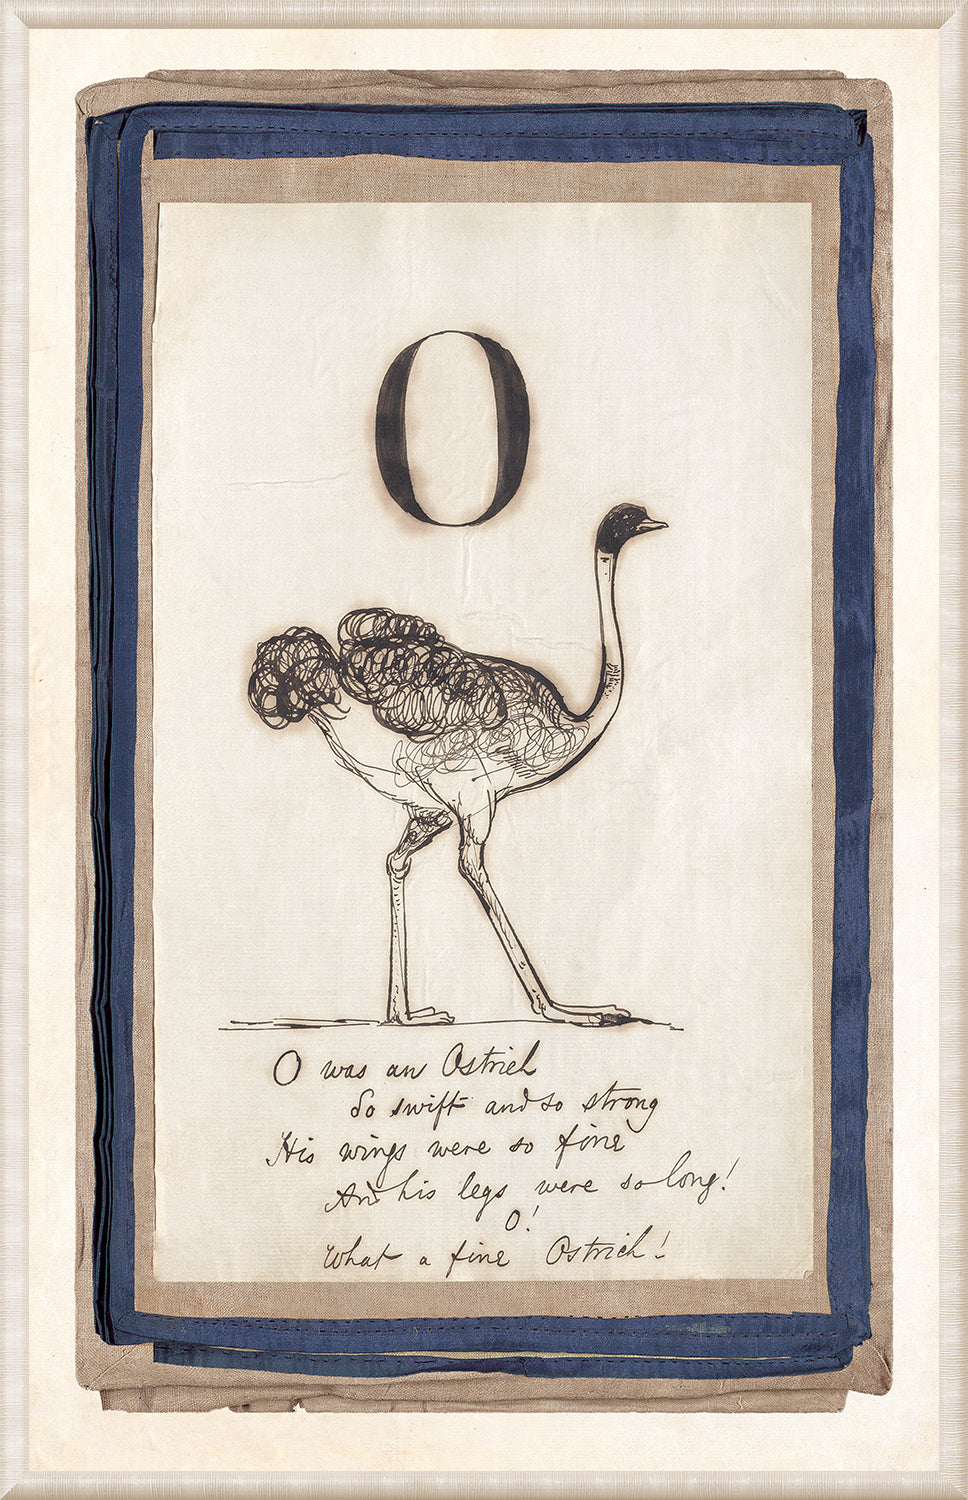 O
O was an Ostrich
So swift and so strong
His wings were so fine
And his legs were so long!
O!
What a fine Ostrich!